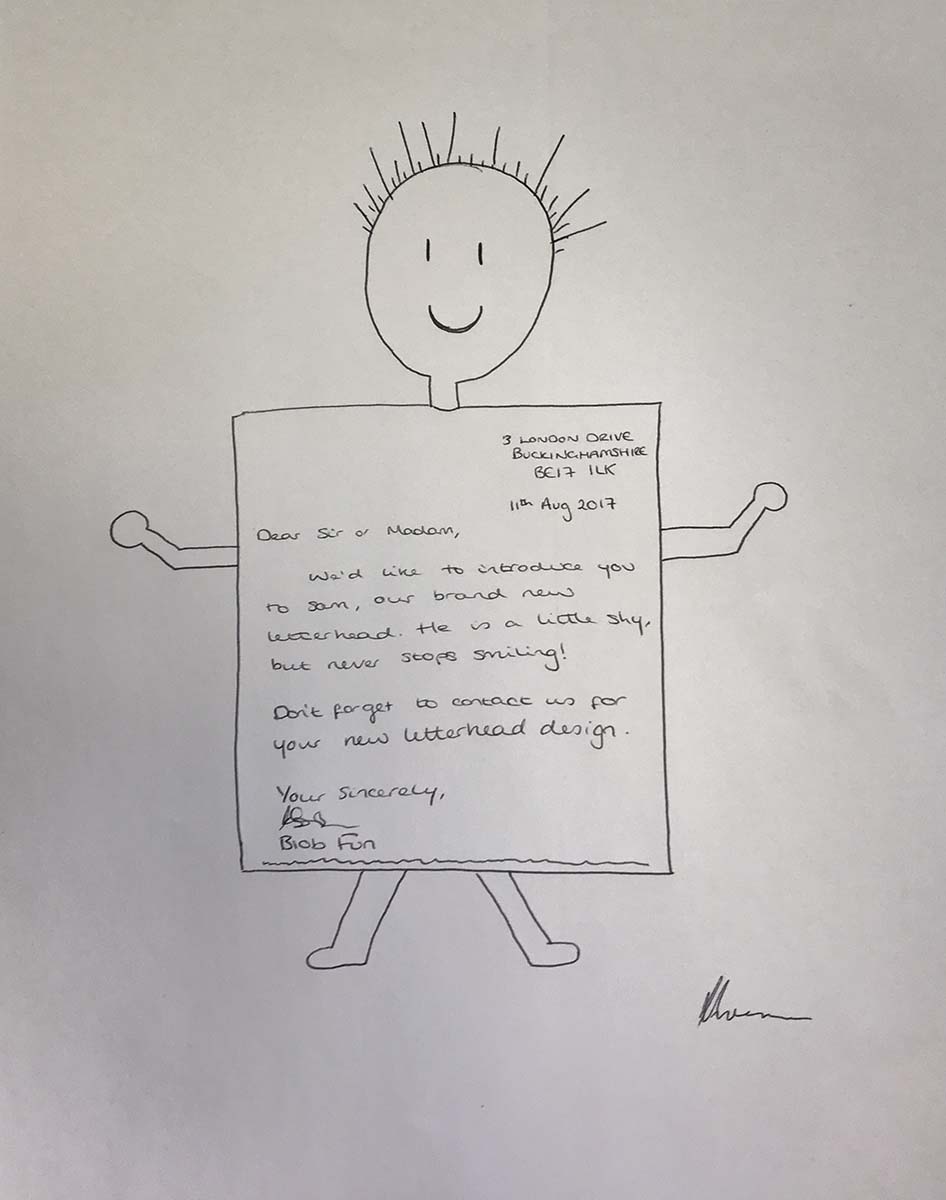 3 LONDON DRIVE
BUCKINGHAMSHIRE
BE17 1LK
11th Aug 2017
Dear Sir or Madam,
We'd like to introduce you
to Sam, our brand new
letterhead. He is a little shy,
but never stops smiling!
Don't forget to contact us for
your new letterhead design.
Your Sincerely,
Blob Fun